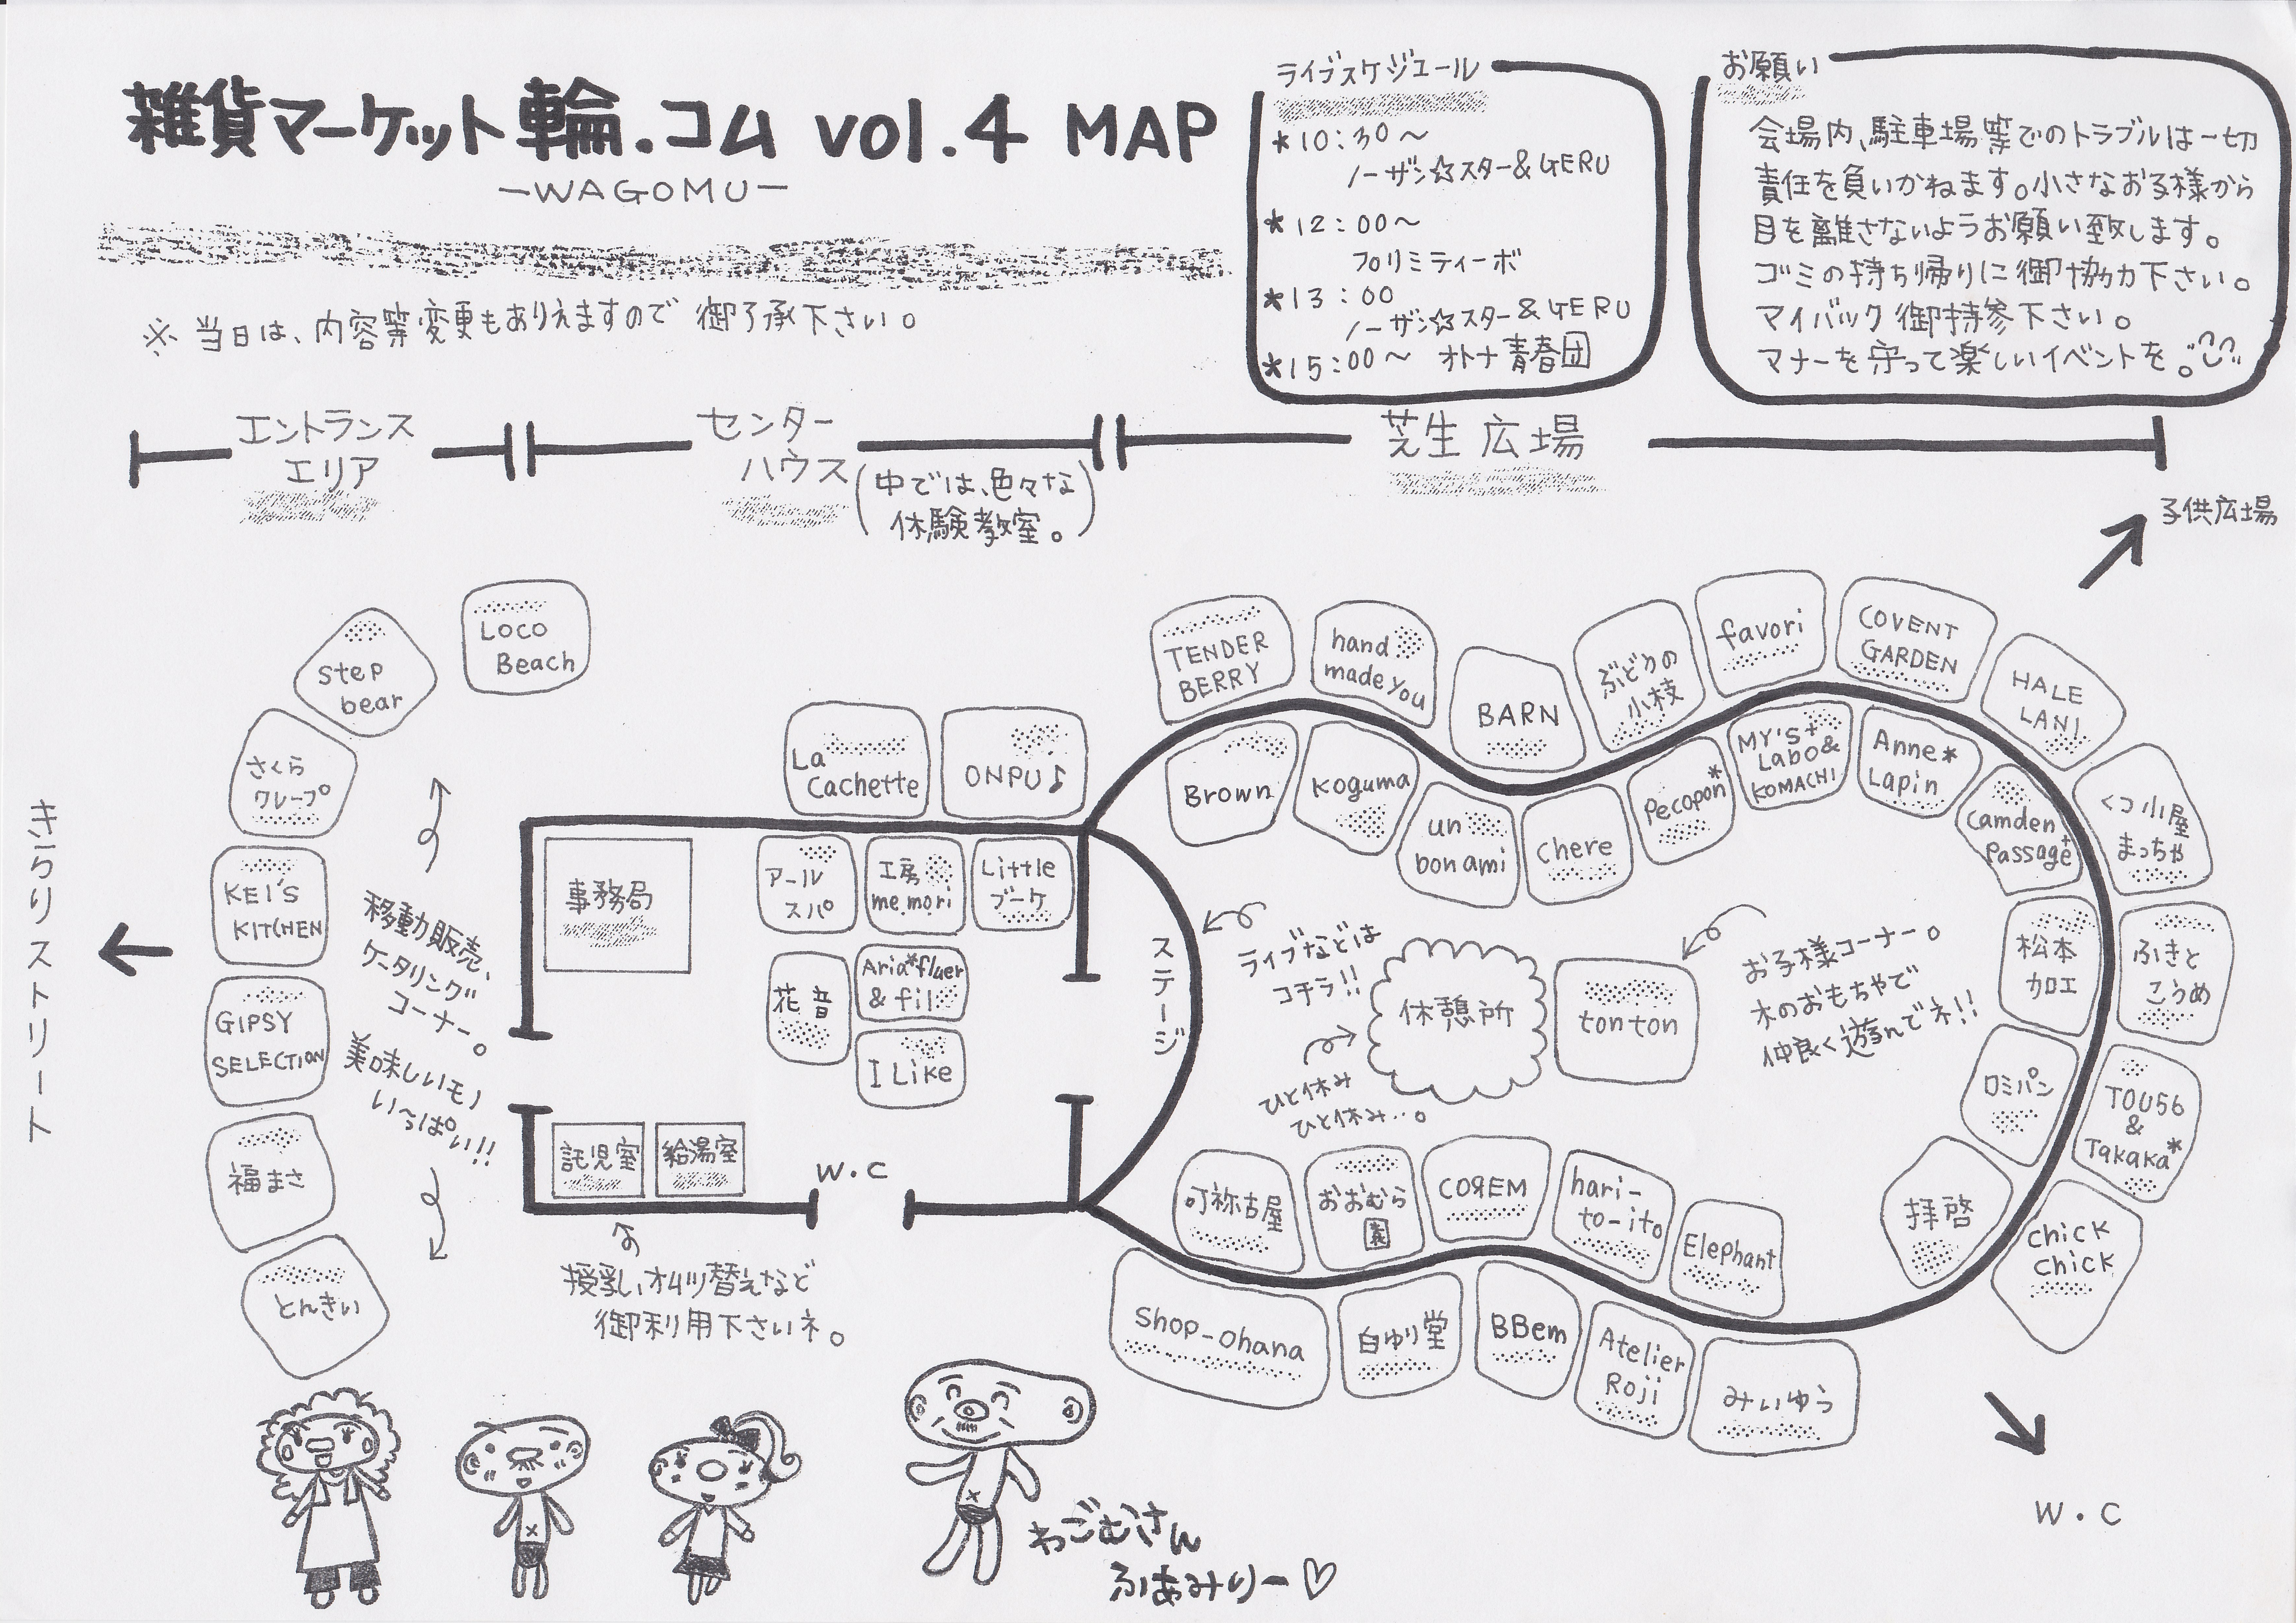 雑貨マーケット輪.コム vol.4 MAP
-WAGOMU-
※当日は、内容等変更もありえますので御了承下さい。
ライブスケジュール
*10:30〜
ノーザン☆スター&GERU
*12:00〜
プリミティーボ
*13:00
ノーザン☆スター&GERU
*15:00〜 オトナ青春団
お願い
会場内、駐車場等でのトラブルは一切
責任を負いかねます。小さなお子様から
目を離さないようお願い致します。
ゴミの持ち帰りに御協力下さい。
マイバック御持参下さい。
マナーを守って楽しいイベントを。
エントランス
エリア
センター
ハウス
(中では、色々な
体験教室。)
芝生広場
子供広場
きらりストリート
Loco
Beach
step
bear
さくら
クレープ
KEI'S
KITCHEN
GIPSY
SELECTION
福まさ
とんきい
移動販売、
ケータリング
コーナー。
美味しいモノ
い〜っぱい!!
La
Cachette
ONPU♪
事務局
アール
スパ
工房
me.mori
Little
ブーケ
花音
Aria*fluer
& fil
I Like
託児室
給湯室
W.C
授乳、オムツ替えなど
御利用下さいネ。
ステージ
ライブなどは
コチラ!!
休憩所
ひと休み
ひと休み…。
tonton
お子様コーナー。
木のおもちゃで
仲良く遊んでネ!!
TENDER
BERRY
hand
made you
BARN
ぶどうの
小枝
favori
COVENT
GARDEN
HALE
LANI
くつ小屋
まっちゃ
ふきと
こうめ
TOU56
&
Takaka*
chick
chick
Brown
Koguma
un
bon ami
chere
Pecopon*
MY'S+
Labo&
KOMACHI
Anne*
Lapin
Camden
Passage+
松本
加工
ロミパン
拝啓
叮祢古屋
おおむら
COЯEM
hari-
to-ito
Elephant
Shop-Ohana
白ゆり堂
BBem
Atelier
Roji
みいゆう
W.C
わごむさん
ふぁみりー♡